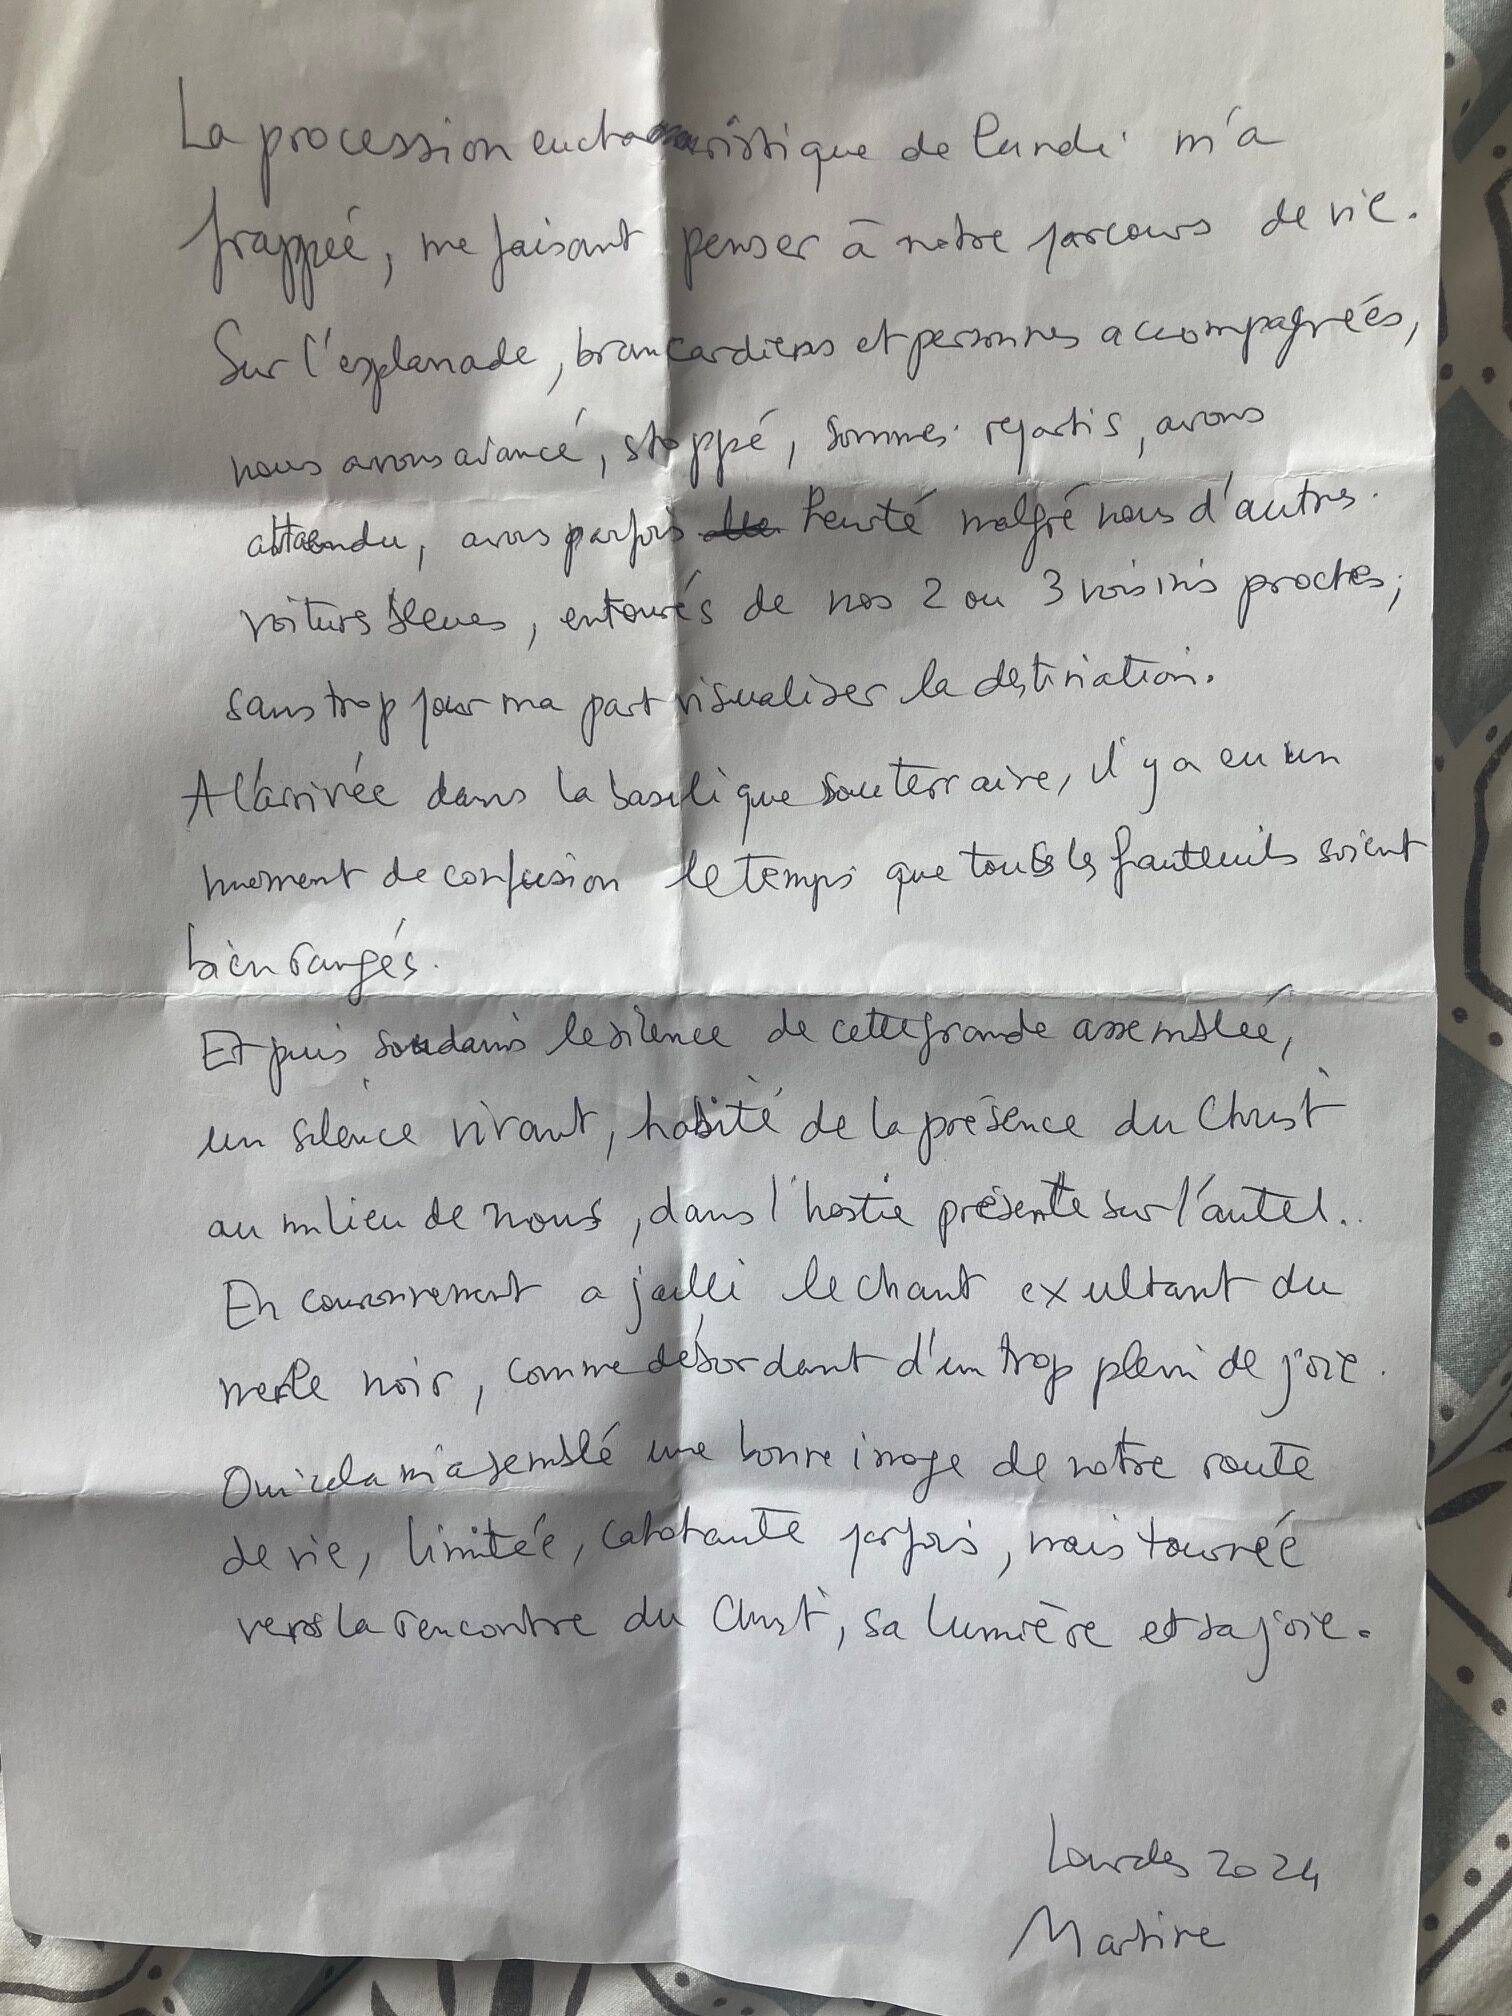 La procession eucharistique de lundi m'a
frappée, me faisant penser à notre parcours de vie.
Sur l'esplanade, brancardiers et personnes accompagnées,
nous avons avancé, stoppé, sommes repartis, avons
attendu, avons parfois heurté malgré nous d'autres
voitures bleues, entourés de nos 2 ou 3 voisins proches,
sans trop pour ma part visualiser la destination.
A l'arrivée dans la basilique souterraine, il y a eu un
moment de confusion le temps que tous les fauteuils soient
bien rangés.
Et puis soudain le silence de cette grande assemblée,
un silence vivant, habité de la présence du Christ
au milieu de nous, dans l'hostie présente sur l'autel..
En couronnement a jailli le chant exultant du
merle noir, comme débordant d'un trop plein de joie.
Oui cela m'a semblé une bonne image de notre route
de vie, limitée, cahotante parfois, mais tournée
vers la rencontre du Christ, sa lumière et sa joie.
Lourdes 2024
Martine